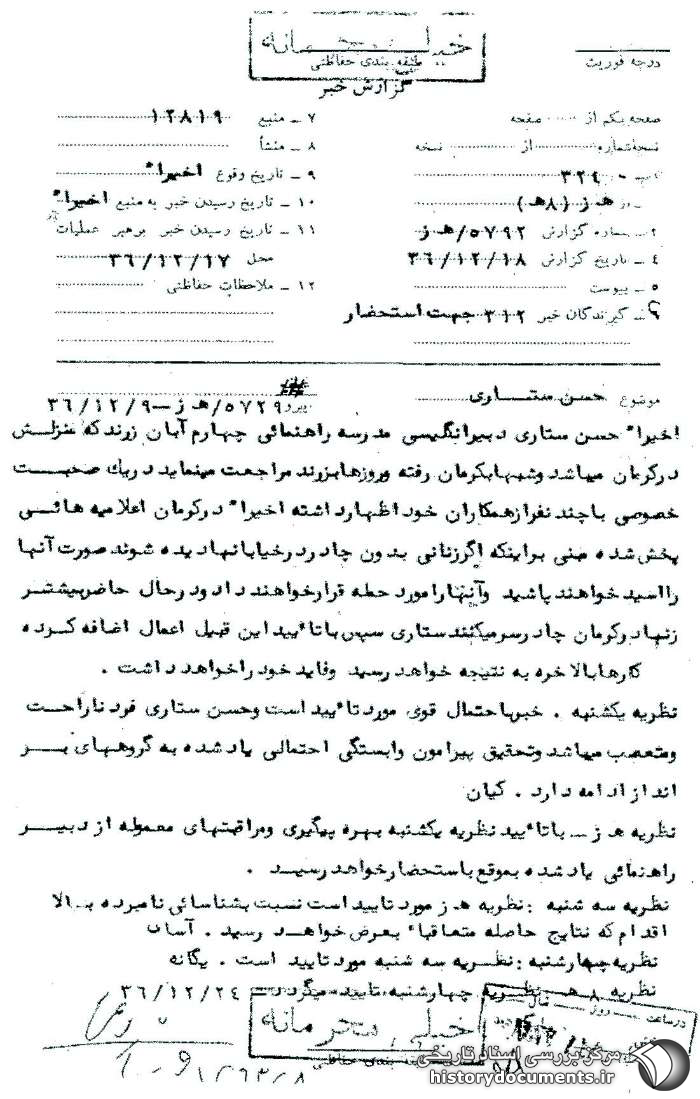 خیلی محرمانه
طبقه بندی حفاظتی
درجه فوریت
گزارش خبر
صفحه یکم از ...... صفحه
نسخه شماره ........ از ........ نسخه
۳۲۴۰
هـ ز (۸هـ)
شماره گزارش ۵۷۹۲/هـ ز
۴ ـ تاریخ گزارش ۳۶/۱۲/۱۸
۵ ـ پیوست
۶ ـ گیرندگان خبر ۳۱۲ جهت استحضار
۷ ـ منبع ۱۲۸۱۹
۸ ـ منشأ
۹ ـ تاریخ وقوع اخیراً
۱۰ ـ تاریخ رسیدن خبر به منبع اخیراً
۱۱ ـ تاریخ رسیدن خبر برهبر عملیات
محل ۳۶/۱۲/۱۷
۱۲ ـ ملاحظات حفاظتی
موضوع حسن ستاری
پیرو ۵۷۲۹/هـ ز ـ ۳۶/۱۲/۹
اخیراً حسن ستاری دبیرانگلیسی مدرسه راهنمائی چهارم آبان زرند که منزلش
درکرمان میباشد وشبها بکرمان رفته وروزها بزرند مراجعت مینماید دریك صحبت
خصوصی با چند نفرازهمکاران خود اظهارداشته اخیراً درکرمان اعلامیه هائی
پخش شده مبنی براینکه اگرزنانی بدون چادردرخیابانها دیده شوند صورت آنها
را اسید خواهند پاشید وآنها را مورد حمله قرارخواهند داد ودرحال حاضر بیشتر
زنها درکرمان چادرسرمیکنند ستاری سپس با تائیید این قبیل اعمال اضافه کرده
کارها بالاخره به نتیجه خواهد رسید وفاید خود را خواهد داشت .
نظریه یکشنبه . خبر با احتمال قوی مورد تائیید است وحسن ستاری فرد ناراحت
ومتعصب میباشد وتحقیق پیرامون وابستگی احتمالی یاد شده به گروههای بر
انداز ادامه دارد . کیان
نظریه هـ ز ـ با تائیید نظریه یکشنبه بهره پیگیری ومراقبتهای معموله از دبیر
راهنمائی یاد شده بموقع باستحضارخواهد رسید .
نظریه سه شنبه : نظریه هـ ز مورد تایید است نسبت بشناسائی نامبرده بالا
اقدام که نتایج حاصله متعاقباً بعرض خواهد رسید . آسان
نظریه چهارشنبه : نظریه سه شنبه مورد تایید است . یگانه
نظریه ۸ هـ نظریه چهارشنبه تایید میگردد ـ ۳۶/۱۲/۲۴
خیلی محرمانه
طبقه بندی حفاظتی
درساعت روز
مرکز بررسی اسناد تاریخی
historydocuments.ir